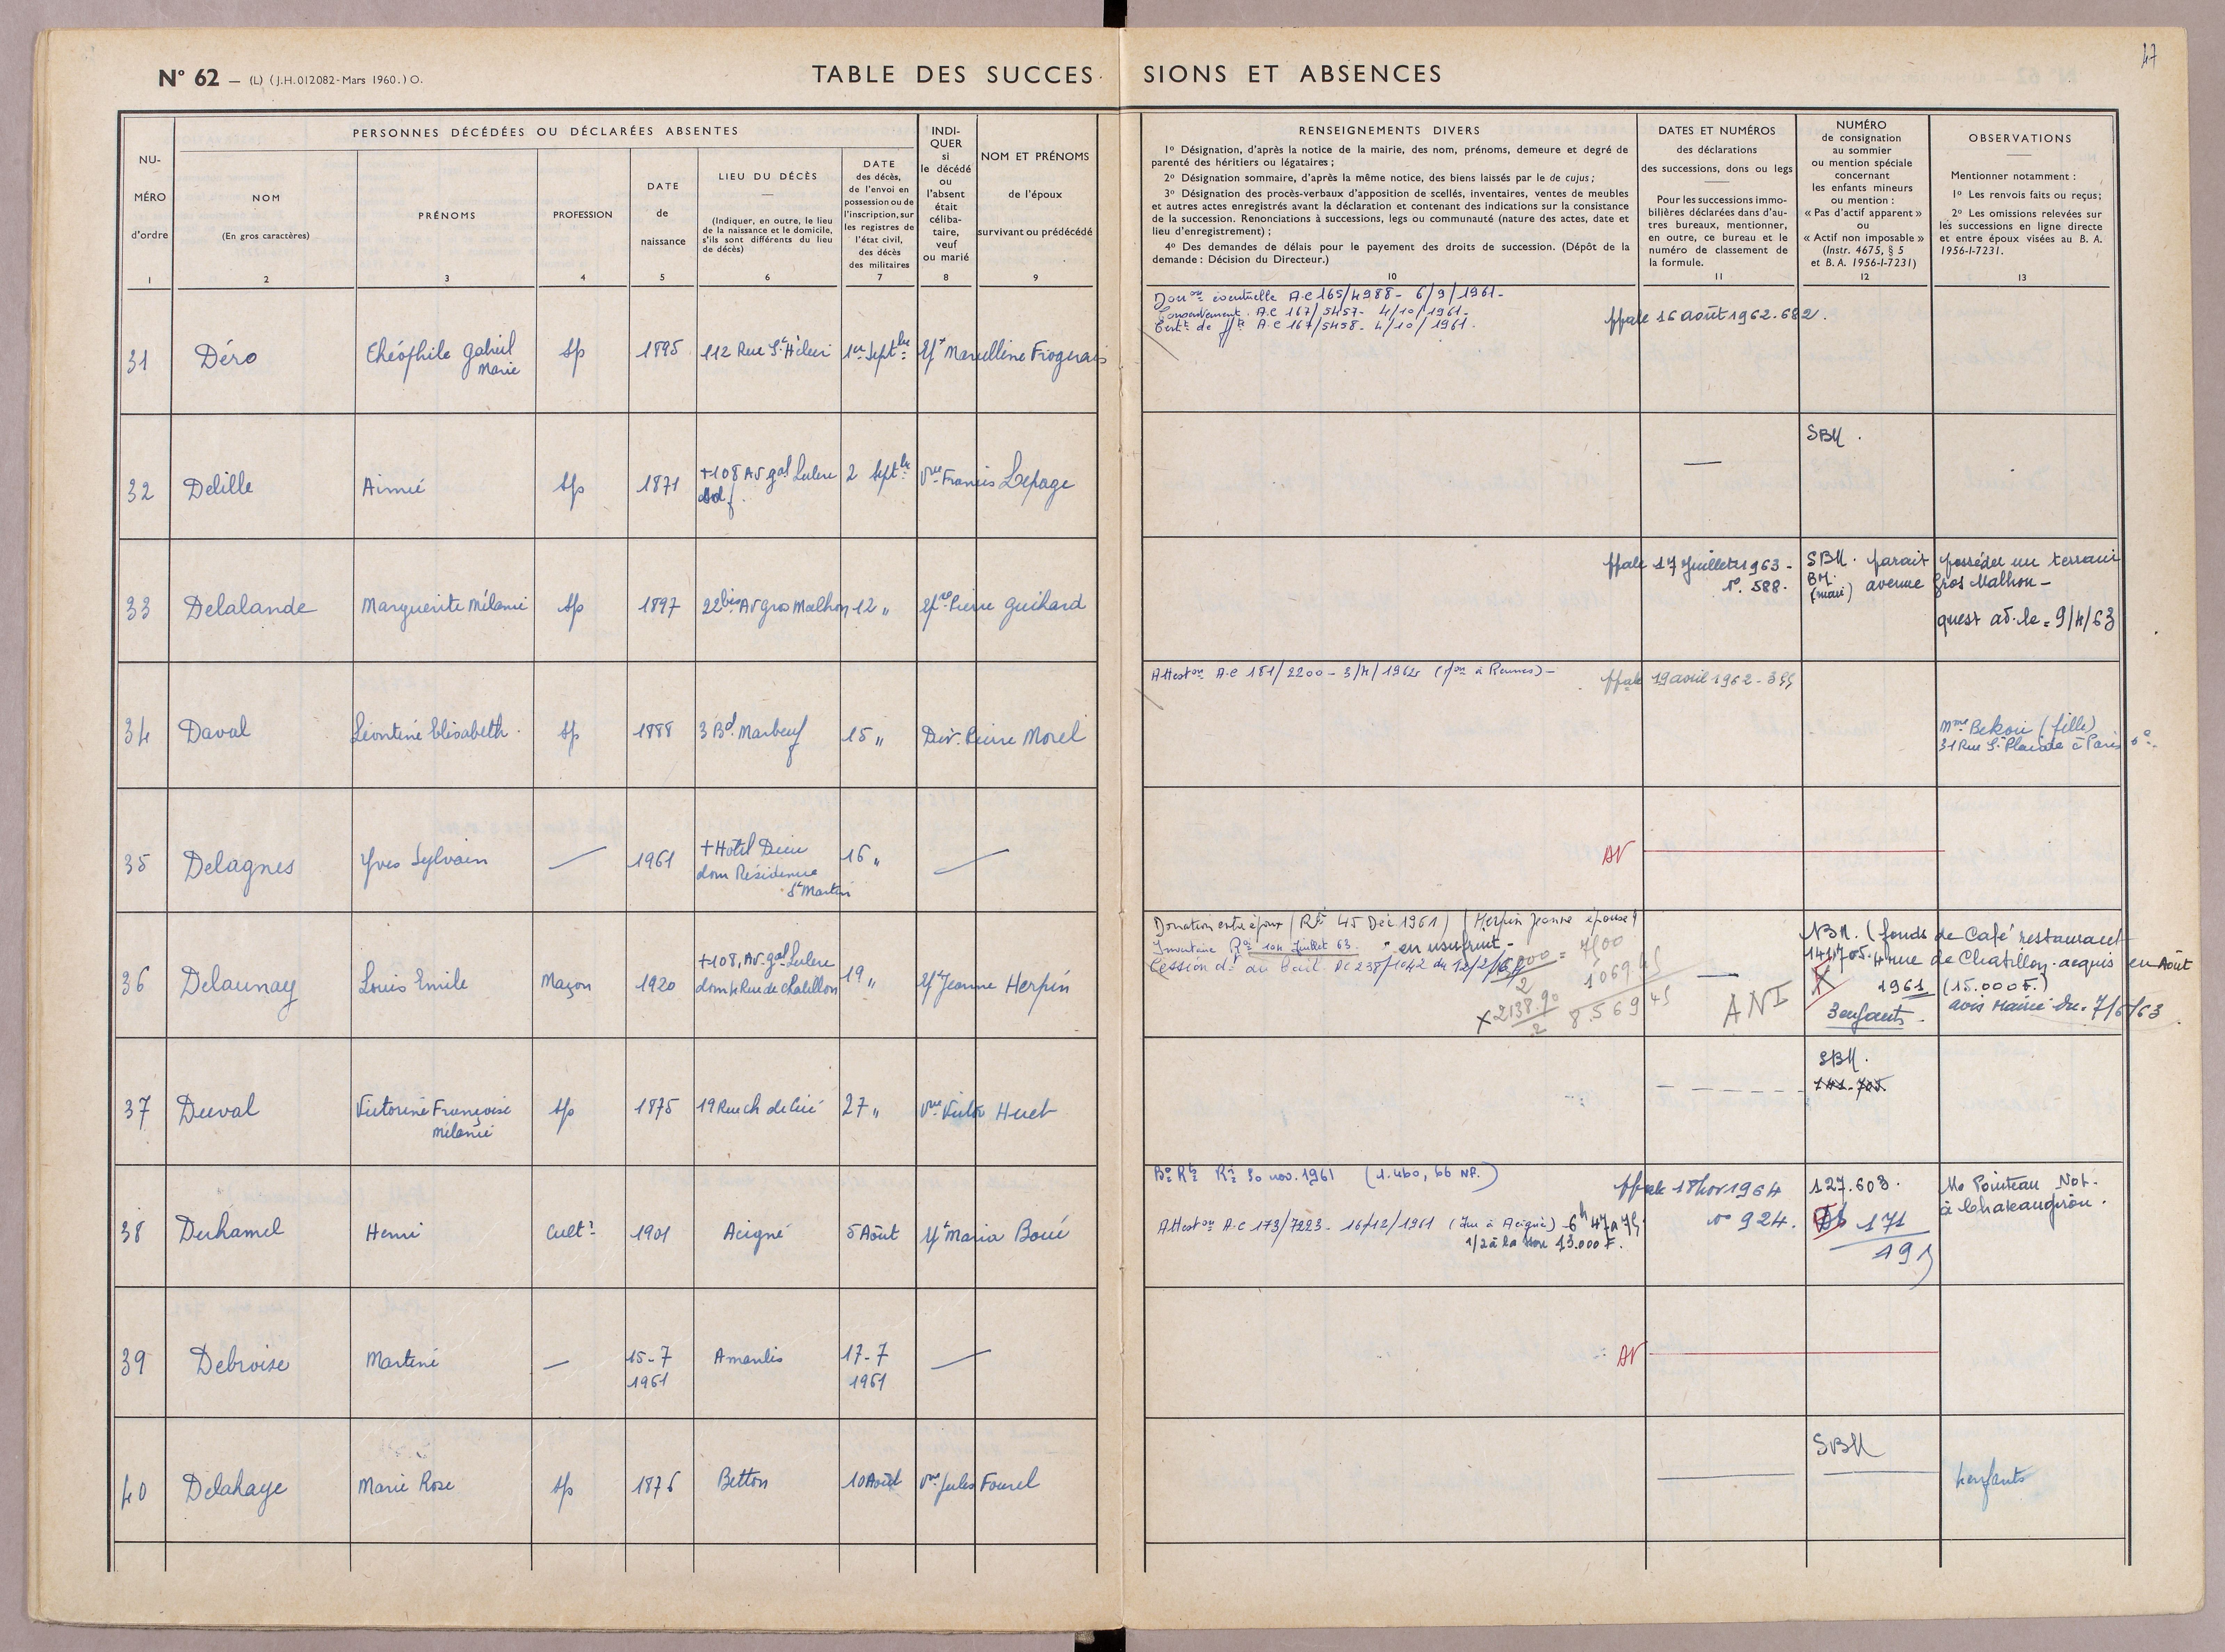 47
N° 62 — (L) (J.H.012082-Mars 1960.) O.
TABLE DES SUCCES SIONS ET ABSENCES
NU-
MÉRO
d'ordre
1
PERSONNES DÉCÉDÉES OU DÉCLARÉES ABSENTES
NOM
(En gros caractères)
2
PRÉNOMS
3
PROFESSION
4
DATE
de
naissance
5
LIEU DU DÉCÈS
(Indiquer, en outre, le lieu
de la naissance et le domicile,
s'ils sont différents du lieu
de décès)
6
DATE
des décès,
de l'envoi en
possession ou de
l'inscription, sur
les registres de
l'état civil,
des décès
des militaires
7
INDI-
QUER
si
le décédé
ou
l'absent
était
céliba-
taire,
veuf
ou marié
8
NOM ET PRÉNOMS
de l'époux
survivant ou prédécédé
9
RENSEIGNEMENTS DIVERS
1° Désignation, d'après la notice de la mairie, des nom, prénoms, demeure et degré de
parenté des héritiers ou légataires ;
2° Désignation sommaire, d'après la même notice, des biens laissés par le de cujus ;
3° Désignation des procès-verbaux d'apposition de scellés, inventaires, ventes de meubles
et autres actes enregistrés avant la déclaration et contenant des indications sur la consistance
de la succession. Renonciations à successions, legs ou communauté (nature des actes, date et
lieu d'enregistrement) ;
4° Des demandes de délais pour le payement des droits de succession. (Dépôt de la
demande : Décision du Directeur.)
10
DATES ET NUMÉROS
des déclarations
des successions, dons ou legs
Pour les successions immo-
bilières déclarées dans d'au-
tres bureaux, mentionner,
en outre, ce bureau et le
numéro de classement de
la formule.
11
NUMÉRO
de consignation
au sommier
ou mention spéciale
concernant
les enfants mineurs
ou mention :
« Pas d'actif apparent »
ou
« Actif non imposable »
(Instr. 4675, § 5
et B. A. 1956-I-7231)
12
OBSERVATIONS
Mentionner notamment :
1° Les renvois faits ou reçus ;
2° Les omissions relevées sur
les successions en ligne directe
et entre époux visées au B. A.
1956-I-7231.
13
31 Déro Théophile Gabriel Marie sp 1895 112 Rue St Hélier 1er Septbre Mx Marcelline Frogerais
Donon éventuelle A.C 165/4988 - 6/9/1961 -
A.C 167/5457 - 4/10/1961 -
A.C 167/5458 - 4/10/1961.
ppale 16 août 1962. 682.
32 Delille Aimée sp 1871 +108 Av gal Leclerc 2 Septbre Vve Francis Lepage
— SBM.
33 Delalande Marguerite Mélanie sp 1897 22bis Av gros Malhon 12 " Pierre Guihard
ppale 17 Juillet 1963 -
n°. 588.
SBM. parait posséder un terrain
BM. (mari) avenue Gros Malhon -
quest ad. le = 9/4/63
34 Daval Léontine Elisabeth. sp 1888 3 Bd Marbeuf 15 " Div. Pierre Morel
Atteston A.C 181/2200 - 3/4/1962 (à Rennes) -
ppale 19 avril 1962 -
Mme Bekour (fille)
31 Rue St Placide à Paris 6e
35 Delagnes Yves Sylvain — 1961 + Hotel Dieu
dom Résidence
St Martin
16 " —
AN
36 Delaunay Louis Emile Maçon 1920 +108, Av. gal Leclerc
dom 4 Rue de Chatillon
19 " Jeanne Herpin
Donation entre époux (Rs 45 Dec 1961) (Herpin Jeanne épouse)
Inventaire Juillet 63. en usufruit -
Cession dt au bail
7500
1069.45
X 2138.90
2
8.569 45
— ANI
NBM. (fonds de Café restaurant
141705. 4 rue de Chatillon. acquis en Août
1961 (15.000 F.)
3 enfants - avis Mairie du. 7/6/63
37 Duval Victorine Françoise
Mélanie
sp 1875 19 Rue ch de Cicé 27 " Vve Victor Huet
SBM.
141.705.
38 Duhamel Henri Cultr 1901 Acigné 5 Août Mx Maria Boué
30 nov. 1961 (1.460, 66 NF.)
Atteston A.C 173/7223 - 16/12/1961 (à Acigné) 6h 47a 75
1/2 à la 13.000 F.
ppale 18 Nov 1964
n° 924.
127.608.
171
191
Me Pointeau Not.
à Chateaugiron.
39 Debroise Martine — 15-7
1961
Amanlis 17-7
1961
—
AN
40 Delahaye Marie Rose sp 1876 Betton 10 Août Vve Jules Fourel
SBM
4 enfants